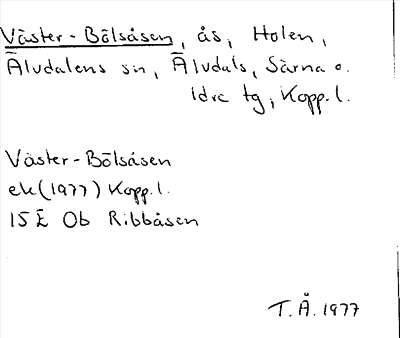 Väster-Bölsåsen, ås, Holen,
Älvdalens sn, Älvdals, Särna o.
Idre tg, Kopp.l.
Väster-Bölsåsen
ek(1977) Kopp.l.
15 E 0b Ribbåsen
T.Ä. 1977